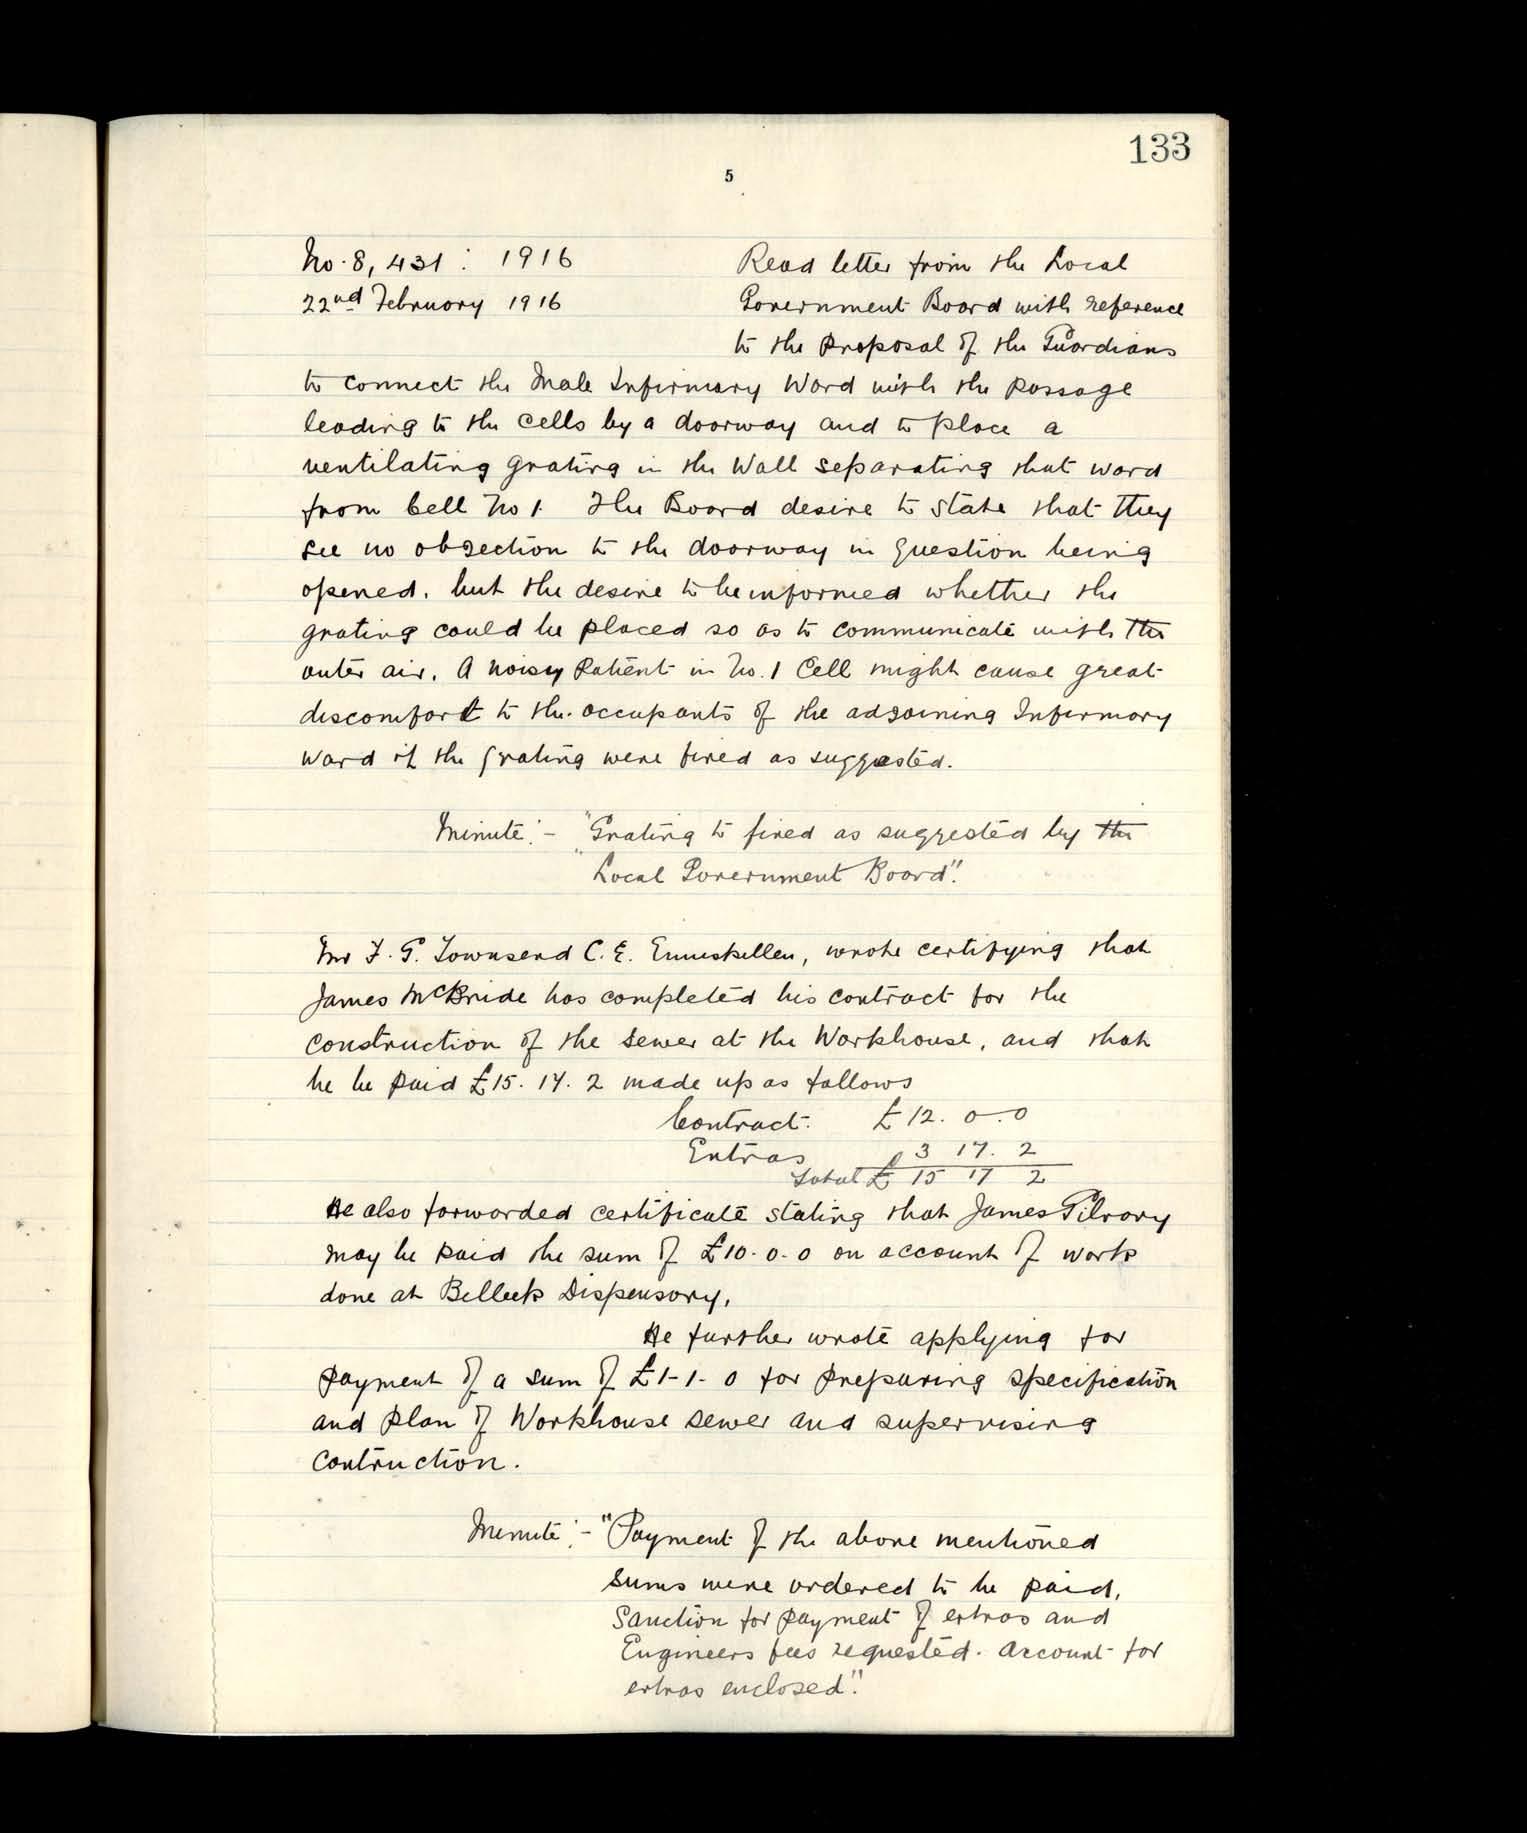 133
5
No. 8,431 : 1916 Read letter from the Local
22nd February 1916 Government Board with reference
to the proposal of the Guardians
to connect the Male Infirmary Ward with the passage
leading to the cells by a doorway and to place a
ventilating grating in the Wall separating that ward
from Cell No 1. The Board desire to state that they
see no objection to the doorway in question being
opened, but the desire to be informed whether the
grating could be placed so as to communicate with the
outer air. A noisy Patient in No. 1 Cell might cause great
discomfort to the occupants of the adjoining Infirmary
ward if the grating were fixed as suggested.
Minute :- "Grating to fixed as suggested by the
"Local Government Board".
Mr F. G. Townsend C. E. Enniskillen, wrote certifying that
James McBride has completed his contract for the
construction of the sewer at the Workhouse, and that
he be paid £15. 17. 2 made up as follows
Contract. £12. 0. 0
Extras £3 17. 2
Total £ 15 17 2
He also forwarded certificate stating that James Gilroy
may be paid the sum of £10. 0. 0 on account of work
done at Belleek Dispensary.
He further wrote applying for
payment of a sum of £1-1-0 for preparing specification
and plan of Workhouse sewer and supervising
contruction.
Minute :- "Payment of the above mentioned
sums were ordered to be paid.
Sanction for payment of extras and
Engineers fees requested. Account for
extras enclosed".